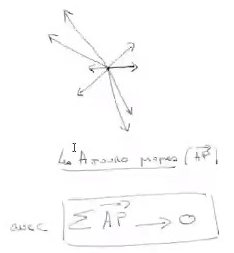 Les Amours propres (AP)
avec Σ AP → 0